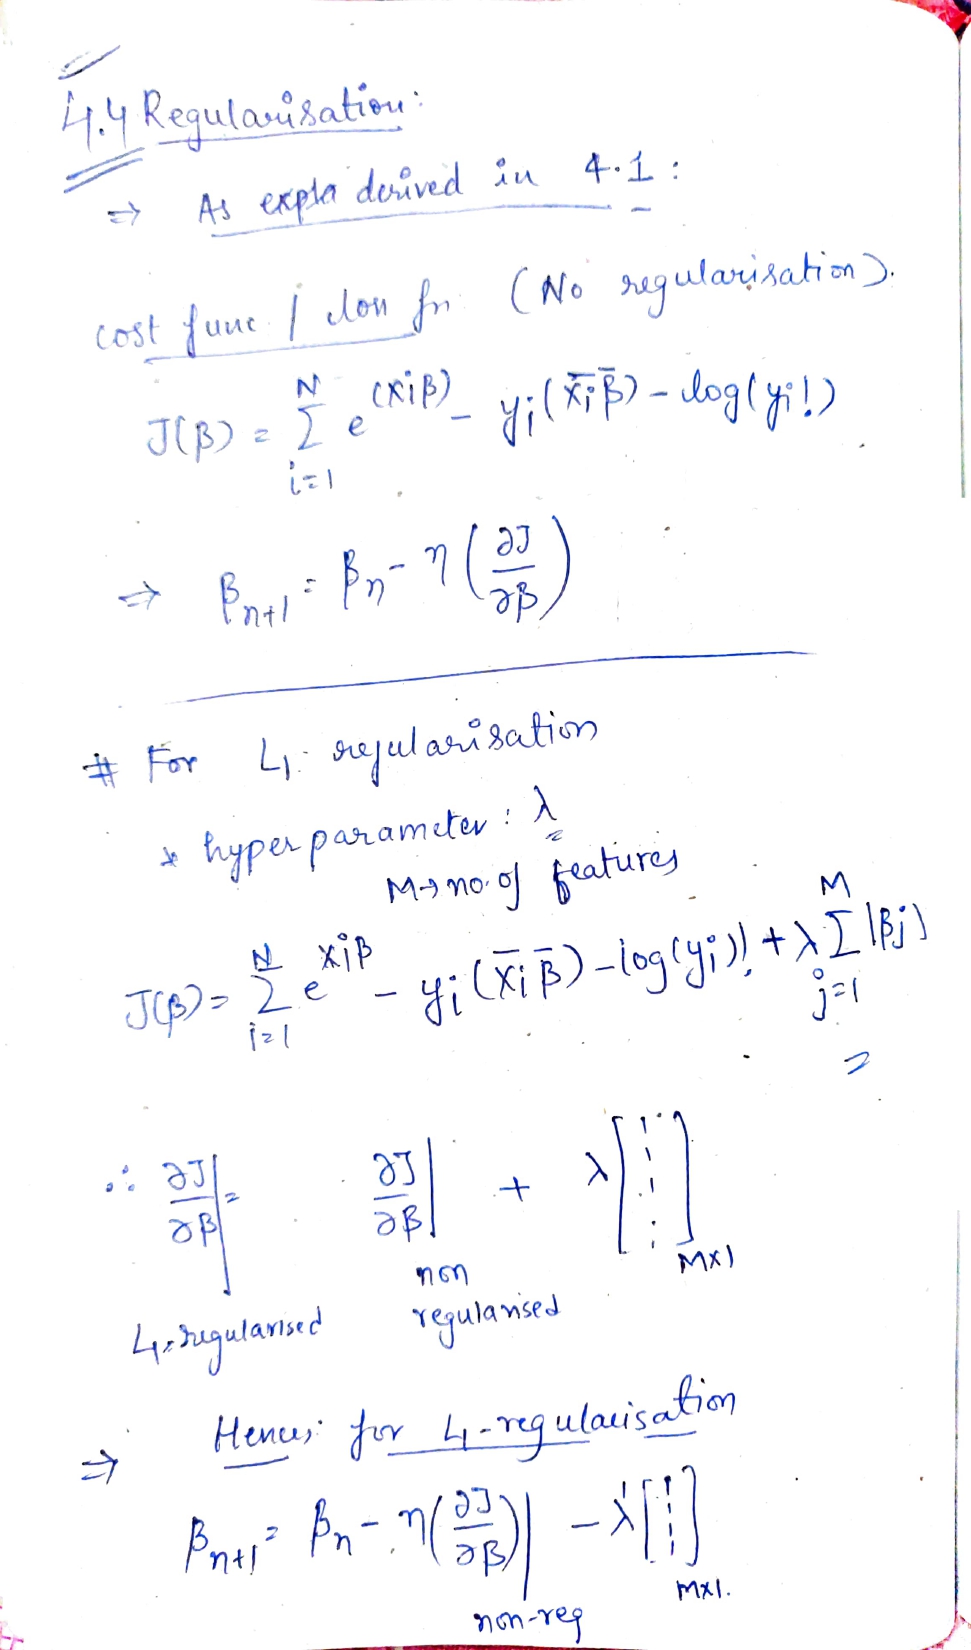 4.4 Regularisation:
⇒ As expla derived in 4.1:
cost func / loss fn (No regularisation).
J(β) = N Σ i=1 e^(xiβ) - yi(x̄i β̄) - log(yi!)
⇒ βn+1 = βn - η (∂J/∂β)
# For L1 regularisation
* hyper parameter : λ
M → no. of features
J(β) = N Σ i=1 e^xiβ - yi(x̄i β̄) - log(yi)! + λ M Σ j=1 |βj|
∴ ∂J/∂β| = ∂J/∂β| + λ [1 1 1 ⋮] M×1
L1-regularised non regularised
⇒ Hence, for L1-regularisation
βn+1 = βn - η(∂J/∂β)| non-reg - λ[1 ⋮ 1] M×1.